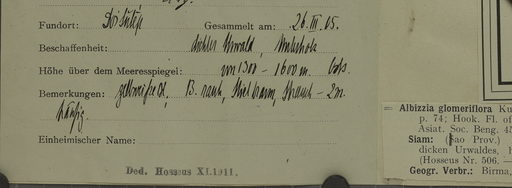 Fundort: Doi Sutep Gesammelt am: 26. III. 05.
Beschaffenheit: dichter Urwald, Unterholz
Höhe über dem Meeresspiegel: von 1300 – 1600 m.
Bemerkungen: Strauch – 2m
häufig.
Einheimischer Name:
Ded. Hosseus XI.1911.
Albizzia glomeriflora Ku
p. 74; Hook. Fl. of
Asiat. Soc. Beng. 45
Siam: (Lao Prov.)
dicken Urwaldes, h
(Hosseus Nr. 506. —
Geogr. Verbr.: Birma,